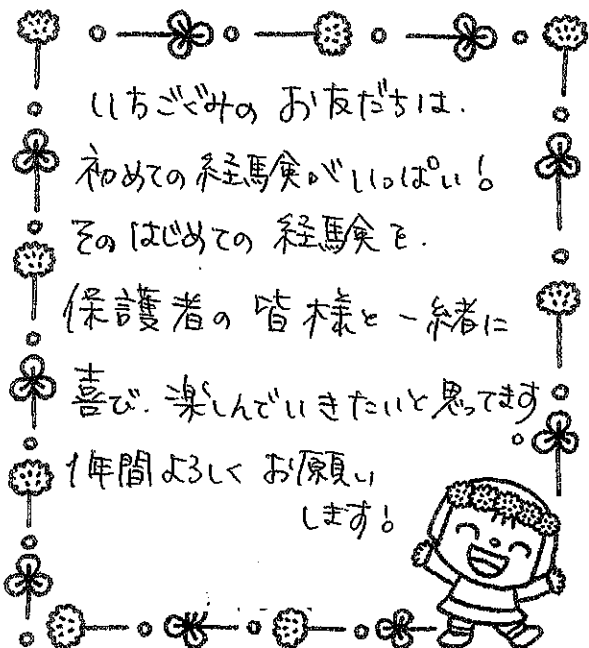 いちごぐみの お友だちは、
初めての経験がいっぱい!
そのはじめての 経験を、
保護者の 皆様と一緒に
喜び、楽しんでいきたいと思ってます
1年間よろしく お願い
します!